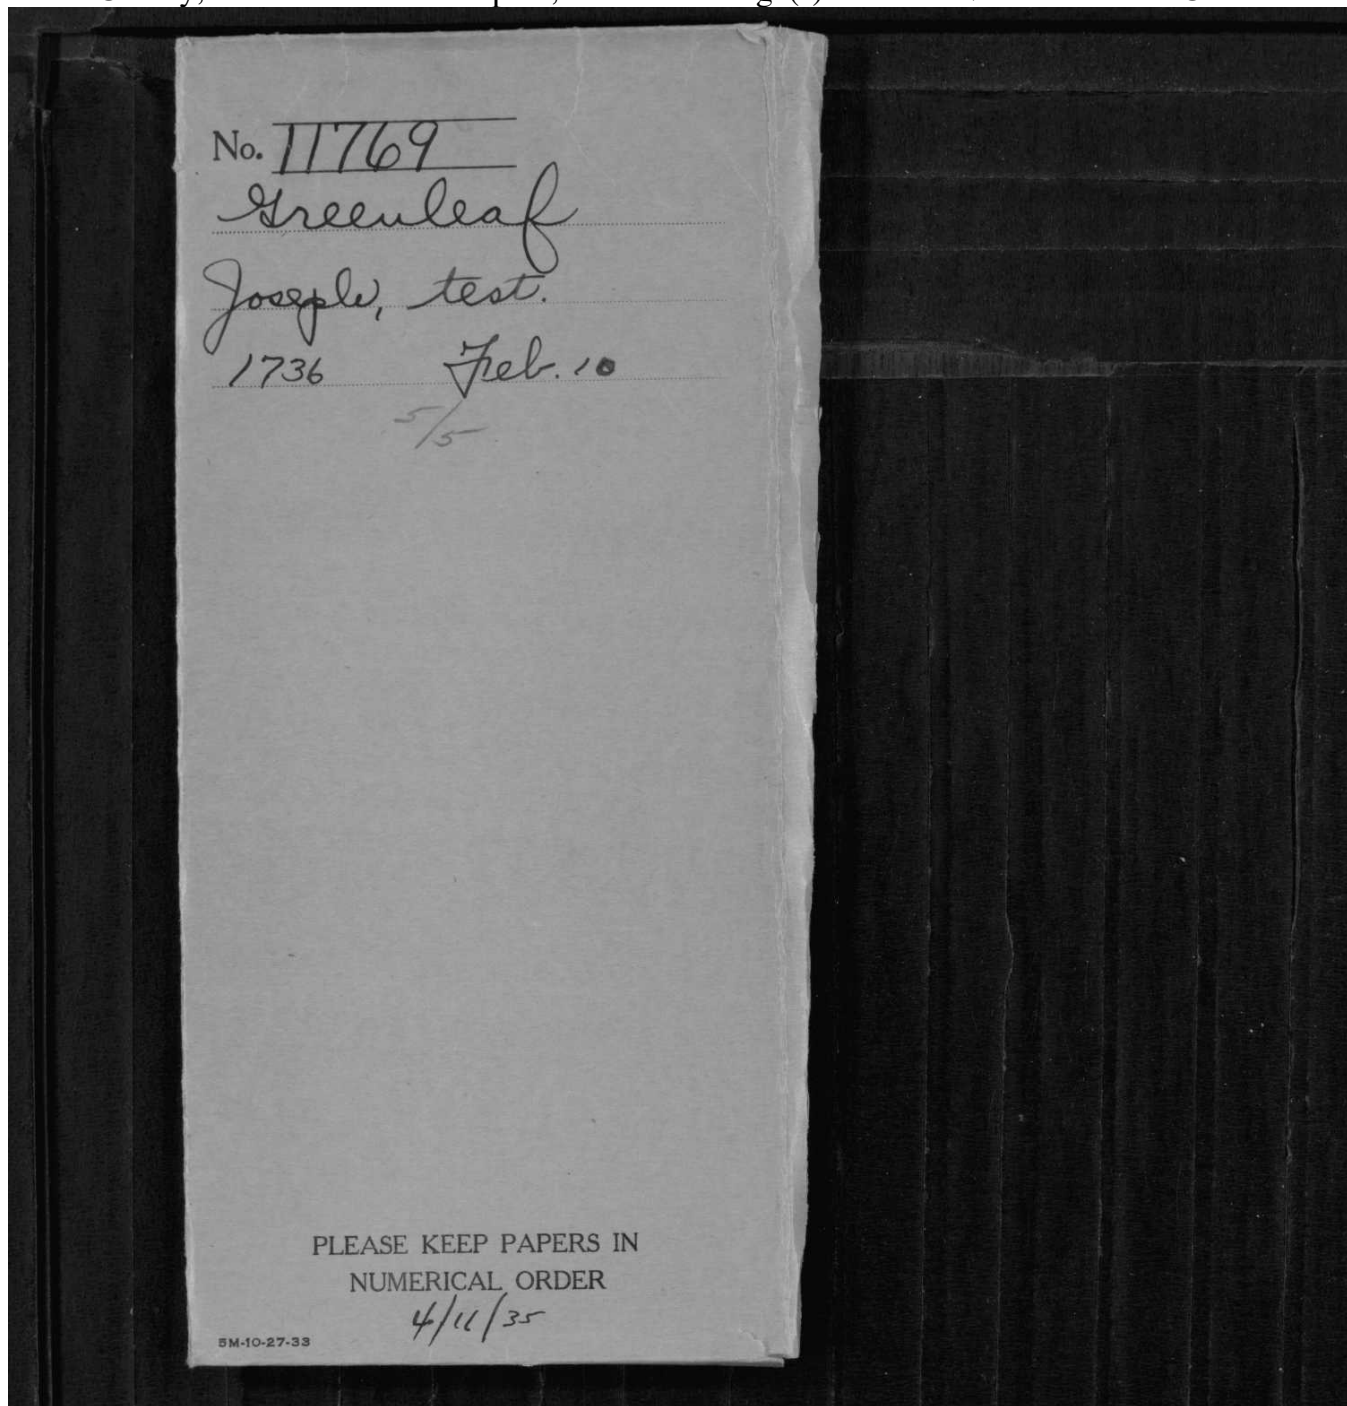 No. 11769
Greenleaf
Joseph, test.
1736 Feb. 10
5/5
PLEASE KEEP PAPERS IN
NUMERICAL ORDER
4/11/35
5M-10-27-33